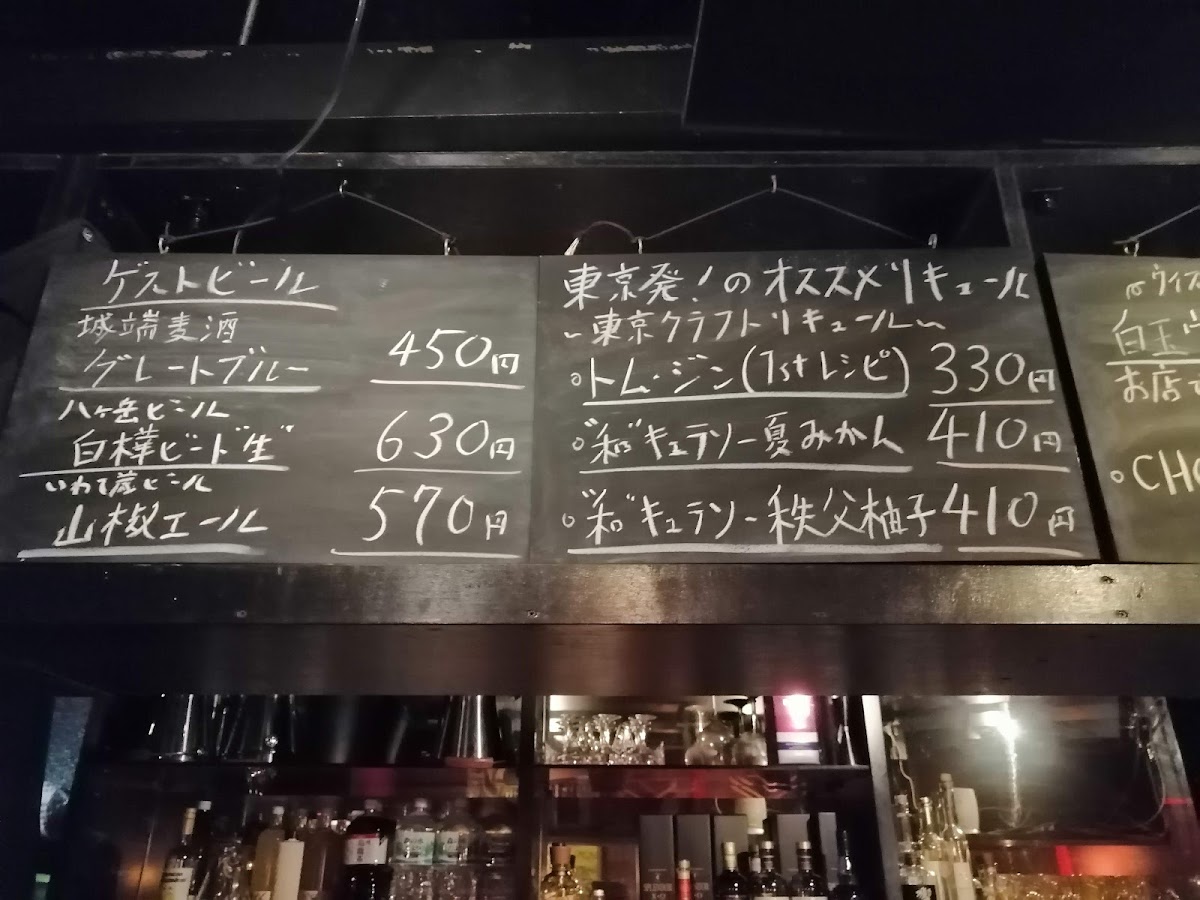 ゲストビール
城端麦酒
グレートブルー 450円
八ヶ岳ビール
白樺ビード"生" 630円
いわて蔵ビール
山椒エール 570円
東京発!のオススメリキュール
~東京クラフトリキュール~
○トム・ジン(1stレシピ) 330円
○"和"キュラソー夏みかん 410円
○"和"キュラソー秩父柚子 410円
白玉
お店で
○CHO